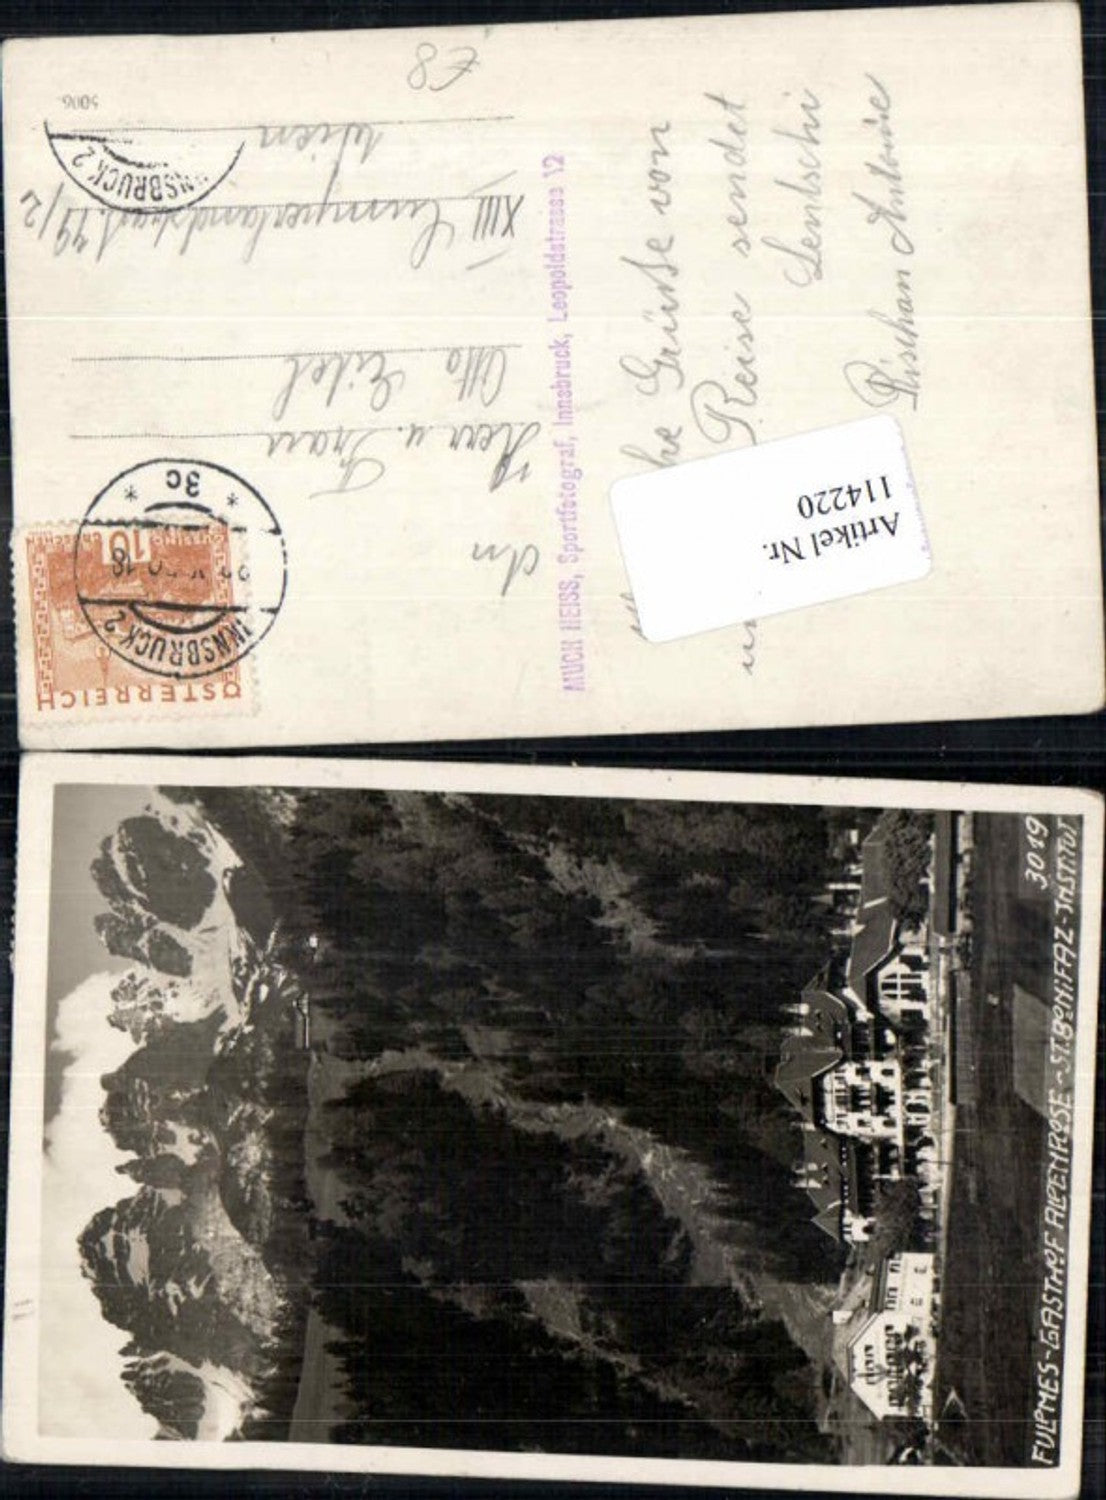 E8
5006
INNSBRUCK 2
Wien
XIII
49/2
Otto
Herrn u. Frau
An
* 3c *
10
INNSBRUCK 2
ÖSTERREICH
MUCH HEISS, Sportfotograf, Innsbruck, Leopoldstrasse 12
Grüße von
Reise sendet
Lentschi
Antonie
Artikel Nr.
114220
3019
FULPMES-GASTHOF ALPENROSE-ST.BONIFAZ-INSTITUT